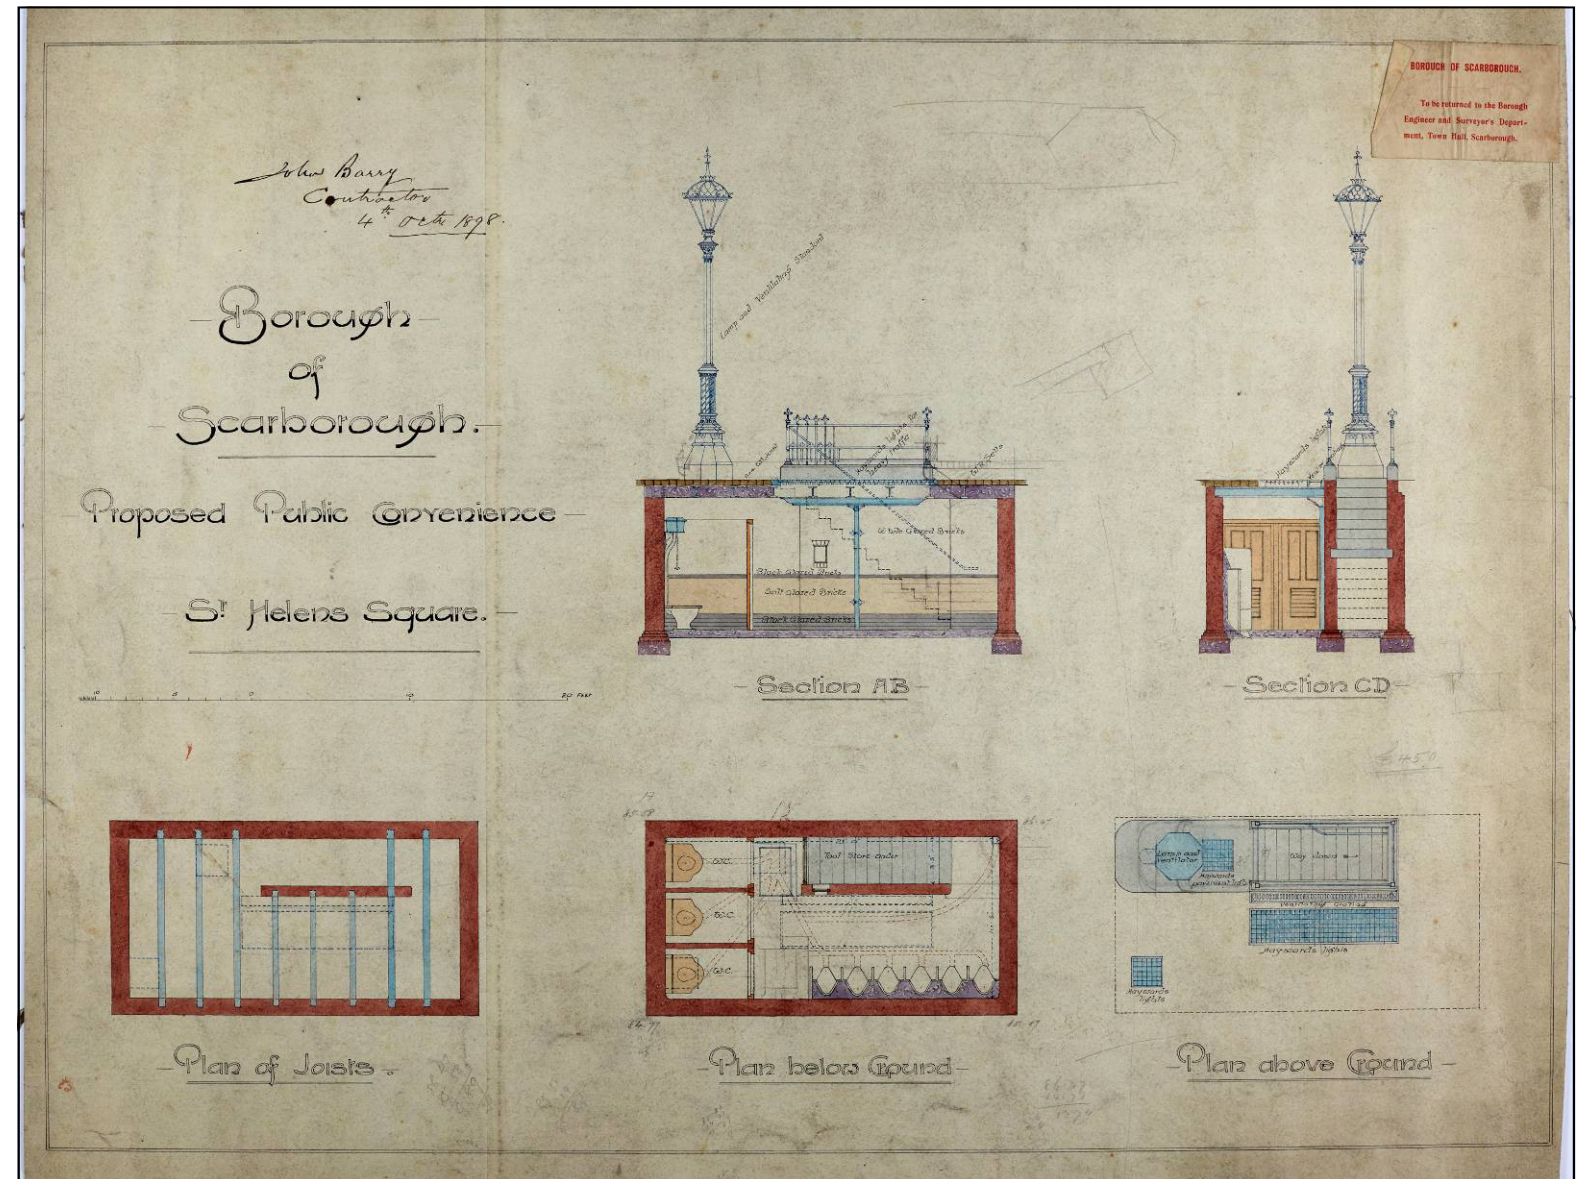 BOROUGH OF SCARBOROUGH.
To be returned to the Borough
Engineer and Surveyor's Depart-
ment, Town Hall, Scarborough.
John Barry
Contractor
4th Octr 1898.
Borough
of
Scarborough.
Proposed Public Convenience
St Helens Square.
10 5 0 10 20 FEET
Lamp and Ventilating Standard
Haywards lights for
heavy traffic
Setts
White Glazed Bricks
Black Glazed Bricks
Salt Glazed Bricks
Black Glazed Bricks
Section AB
Haywards lights
Section CD
£450
Plan of Joists.
A
W.C.
W.C.
W.C.
Tool Store under
Plan below Ground
Lamp and
Ventilator
Haywards
pavement lights
Way down
Haywards lights
Haywards
lights
Plan above Ground